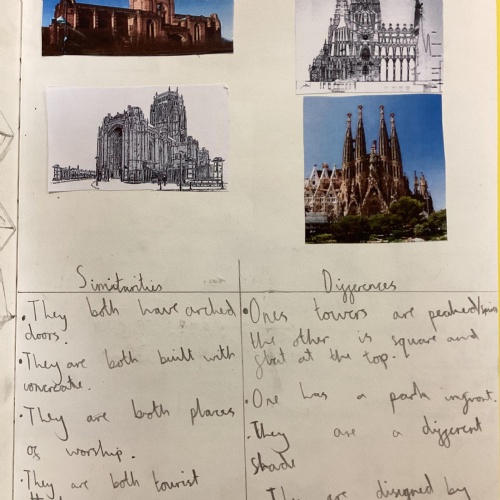 Similarities
• They both have arched
doors.
• They are both built with
concreate.
• They are both places
of worship.
• They are both tourist
Differences
• Ones towers are peaked/
the other is square and
flat at the top.
• One has a park infront.
• They are a different
shade
They are disigned by